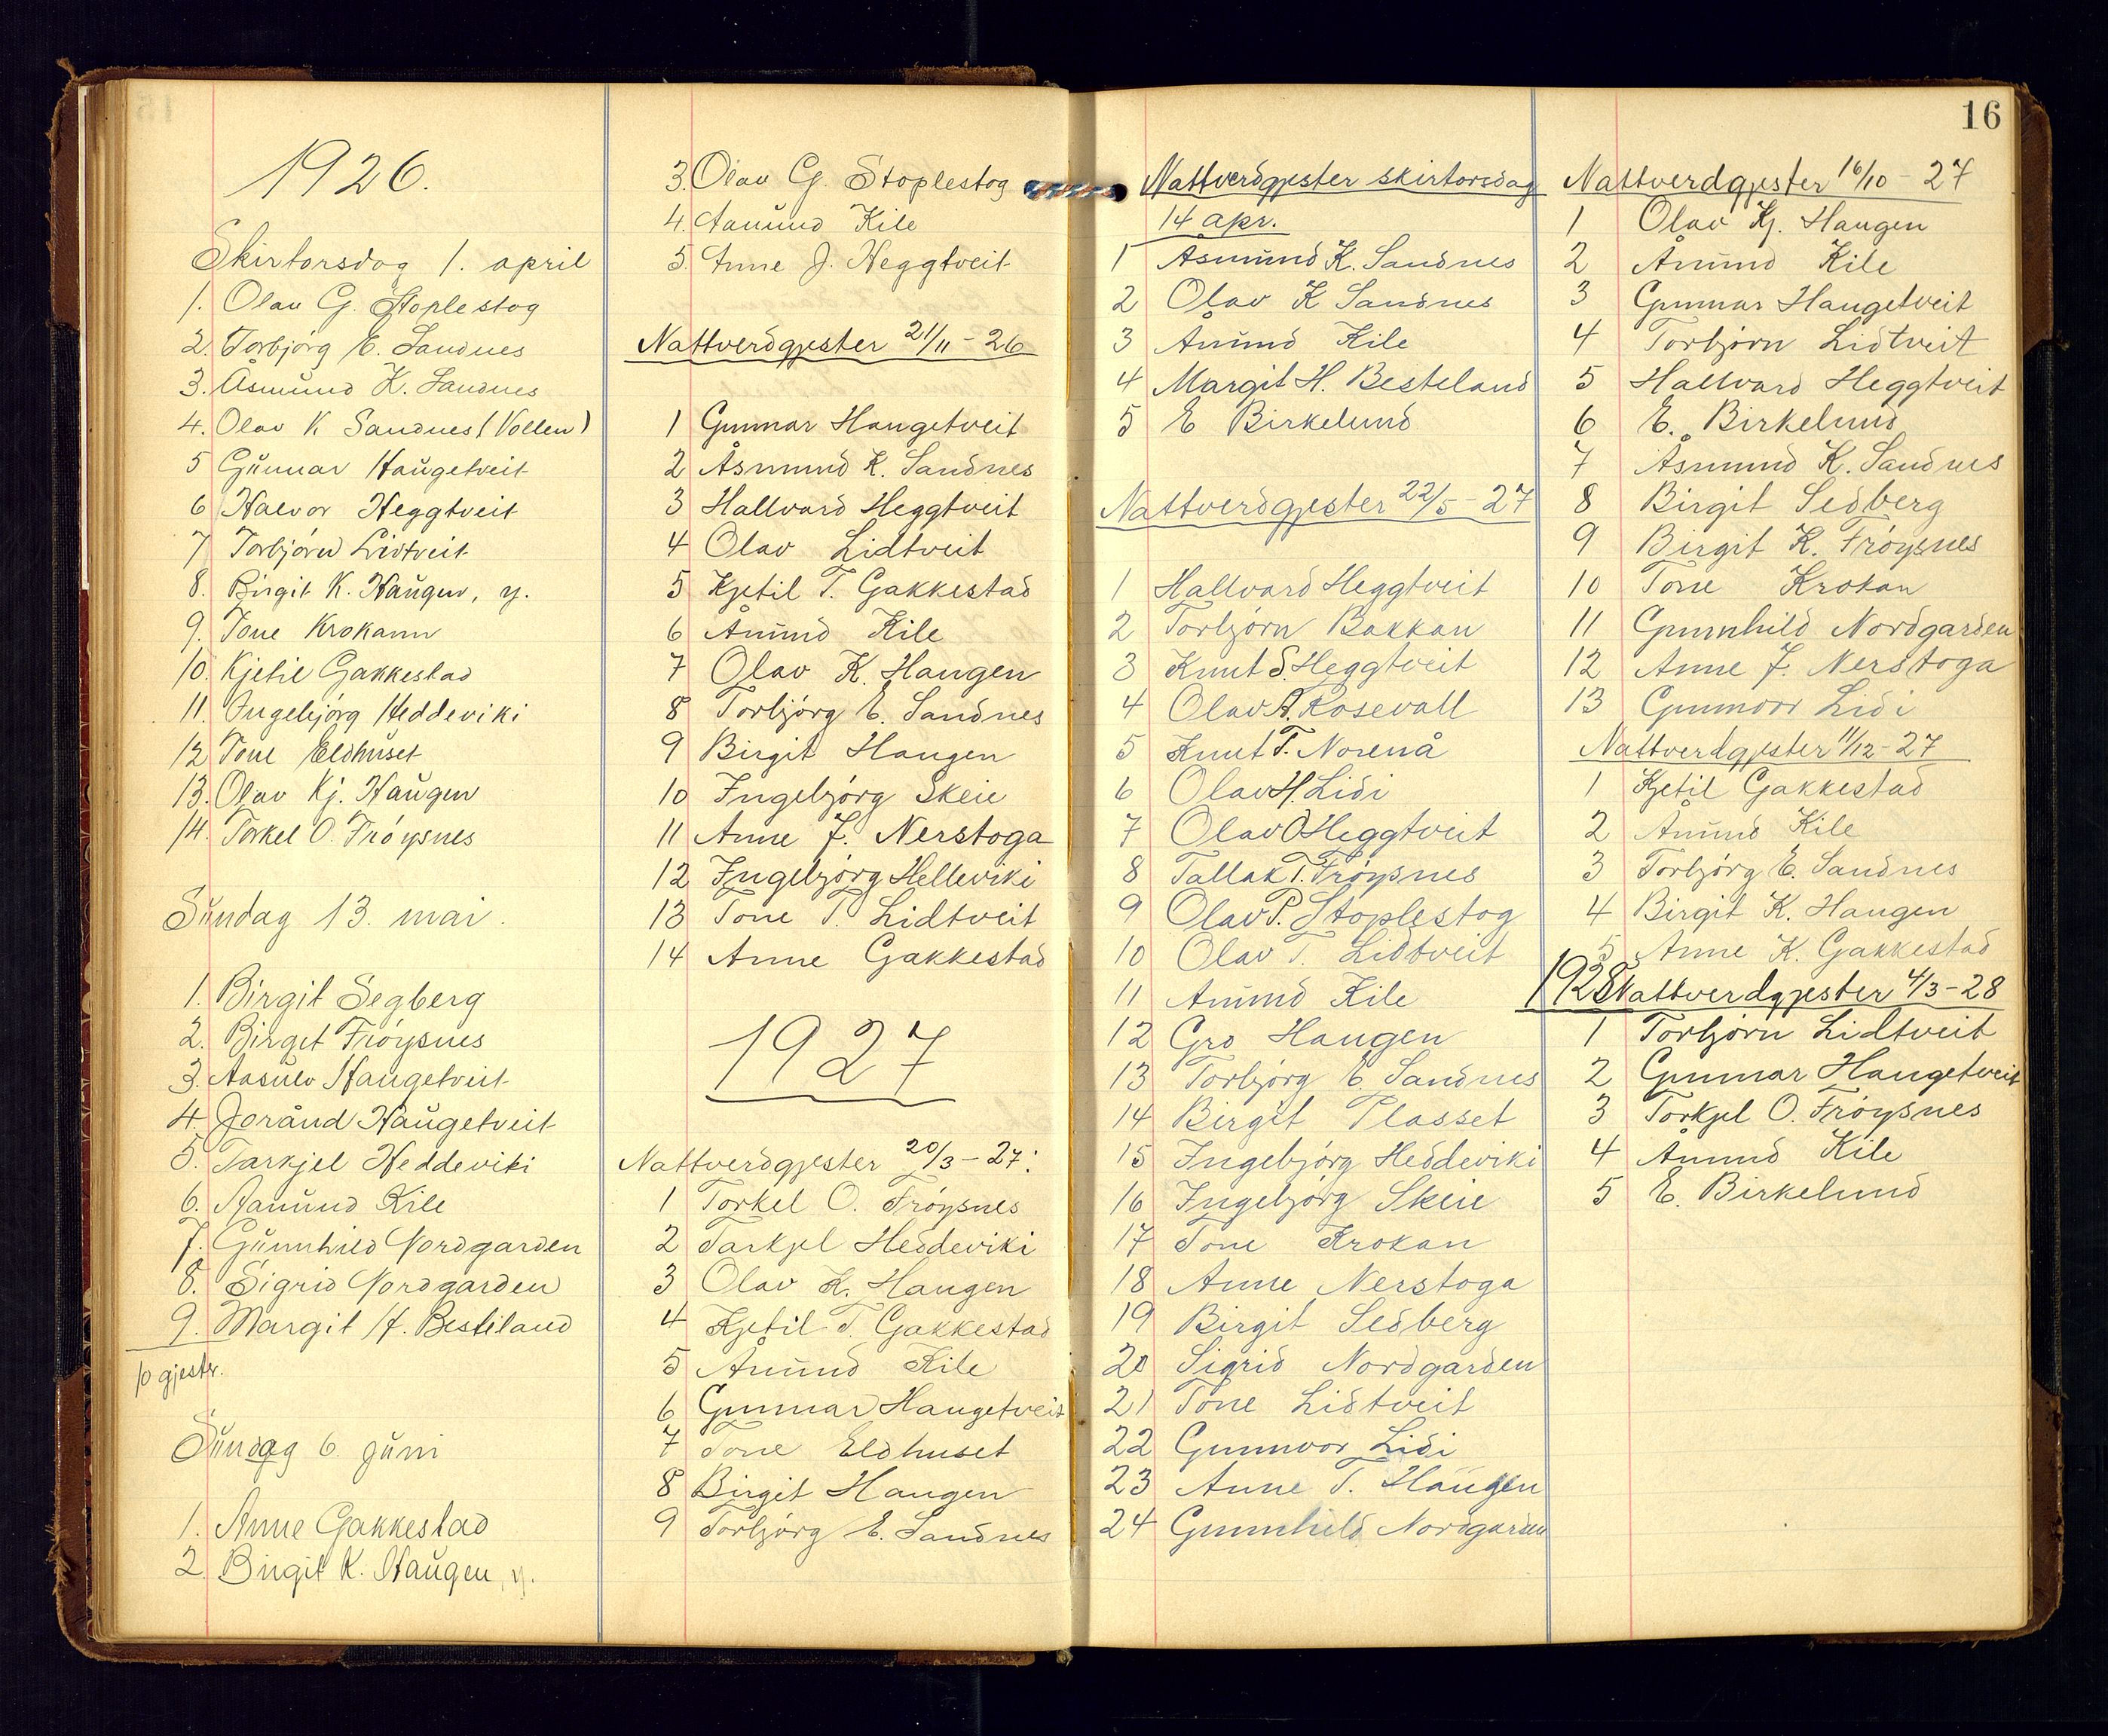 1926.
Skirtorsdag 1. april
1. Olav G. Stoplestog
2. Torbjörg E. Sandnes
3. Åsmund K. Sandnes
4. Olav K Sandnes (Vollen)
5 Gunnar Haugetveit
6 Halvor Heggtveit
7 Torbjörn Lidtveit
8. Birgit K. Haugen, y.
9. Tone Krokann
10. Kjetil Gakkestad
11. Ingebjörg Heddeviki
12 Tone Eldhuset
13. Olav Kj. Haugen
14. Torkel O. Fröysnes
Sundag 13. mai.
1. Birgit Segberg
2. Birgit Fröysnes
3. Aasulv Haugetveit
4. Jorånd Haugetveit
5. Tarkjel Heddeviki
6. Aamund Kile
7. Gunnhild Nordgarden
8. Sigrid Nordgarden
9. Margit H. Besteland
10 gjester.
Sundag 6. juni
1. Anne Gakkestad
2. Birgit K. Haugen, y.
3. Olav G. Stoplestog
4. Aamund Kile
5. Anne J. Heggtveit
Nattverdgjester 21/11 - 26
1 Gunnar Haugetveit
2 Åsmund K. Sandnes
3 Hallvard Heggtveit
4 Olav Lidtveit
5 Kjetil T. Gakkestad
6 Åmund Kile
7 Olav K. Haugen
8 Torbjörg E. Sandnes
9 Birgit Haugen
10 Ingebjörg Skeie
11 Anne J. Nerstoga
12 Ingebjörg Helleviki
13 Tone T. Lidtveit
14 Anne Gakkestad
1927
Nattverdgjester 20/3 - 27:
1 Torkel O. Fröysnes
2 Tarkjel Heddeviki
3 Olav K. Haugen
4 Kjetil T. Gakkestad
5 Åmund Kile
6 Gunnar Haugetveit
7 Tone Eldhuset
8 Birgit Haugen
9 Torbjörg E. Sandnes
16
Nattverdgjester skirtorsdag
14 apr.
1 Åsmund K. Sandnes
2 Olav K Sandnes
3 Åmund Kile
4 Margit H. Besteland
5 E Birkelund
Nattverdgjester 22/5 - 27
1 Hallvard Heggtveit
2 Torbjörn Bakkan
3 Knut S. Heggtveit
4 Olav A. Rosevall
5 Knut T. Norenå
6 Olav H. Lidi
7 Olav O Heggtveit
8 Tallak T. Fröysnes
9 Olav P. Stoplestog
10 Olav T. Lidtveit
11 Åmund Kile
12 Gro Haugen
13 Torbjörg E. Sandnes
14 Birgit Plasset
15 Ingebjörg Heddeviki
16 Ingebjörg Skeie
17 Tone Krokan
18 Anne Nerstoga
19 Birgit Sedberg
20 Sigrid Nordgarden
21 Tone Lidtveit
22 Gunnvor Lidi
23 Anne T. Haugen
24 Gunnhild Nordgarden
Nattverdgjester 16/10 - 27
1 Olav Kj. Haugen
2 Åmund Kile
3 Gunnar Haugetveit
4 Torbjörn Lidtveit
5 Hallvard Heggtveit
6 E. Birkelund
7 Åsmund K. Sandnes
8 Birgit Sedberg
9 Birgit K. Fröysnes
10 Tone Krokan
11 Gunnhild Nordgarden
12 Anne J. Nerstoga
13 Gunnvor Lidi
Nattverdgjester 11/12 - 27
1 Kjetil Gakkestad
2 Åmund Kile
3 Torbjörg E. Sandnes
4 Birgit K. Haugen
5 Anne K. Gakkestad
1928 Nattverdgjester 4/3 - 28
1 Torbjörn Lidtveit
2 Gunnar Haugetveit
3 Torkjel O. Fröysnes
4 Åmund Kile
5 E. Birkelund